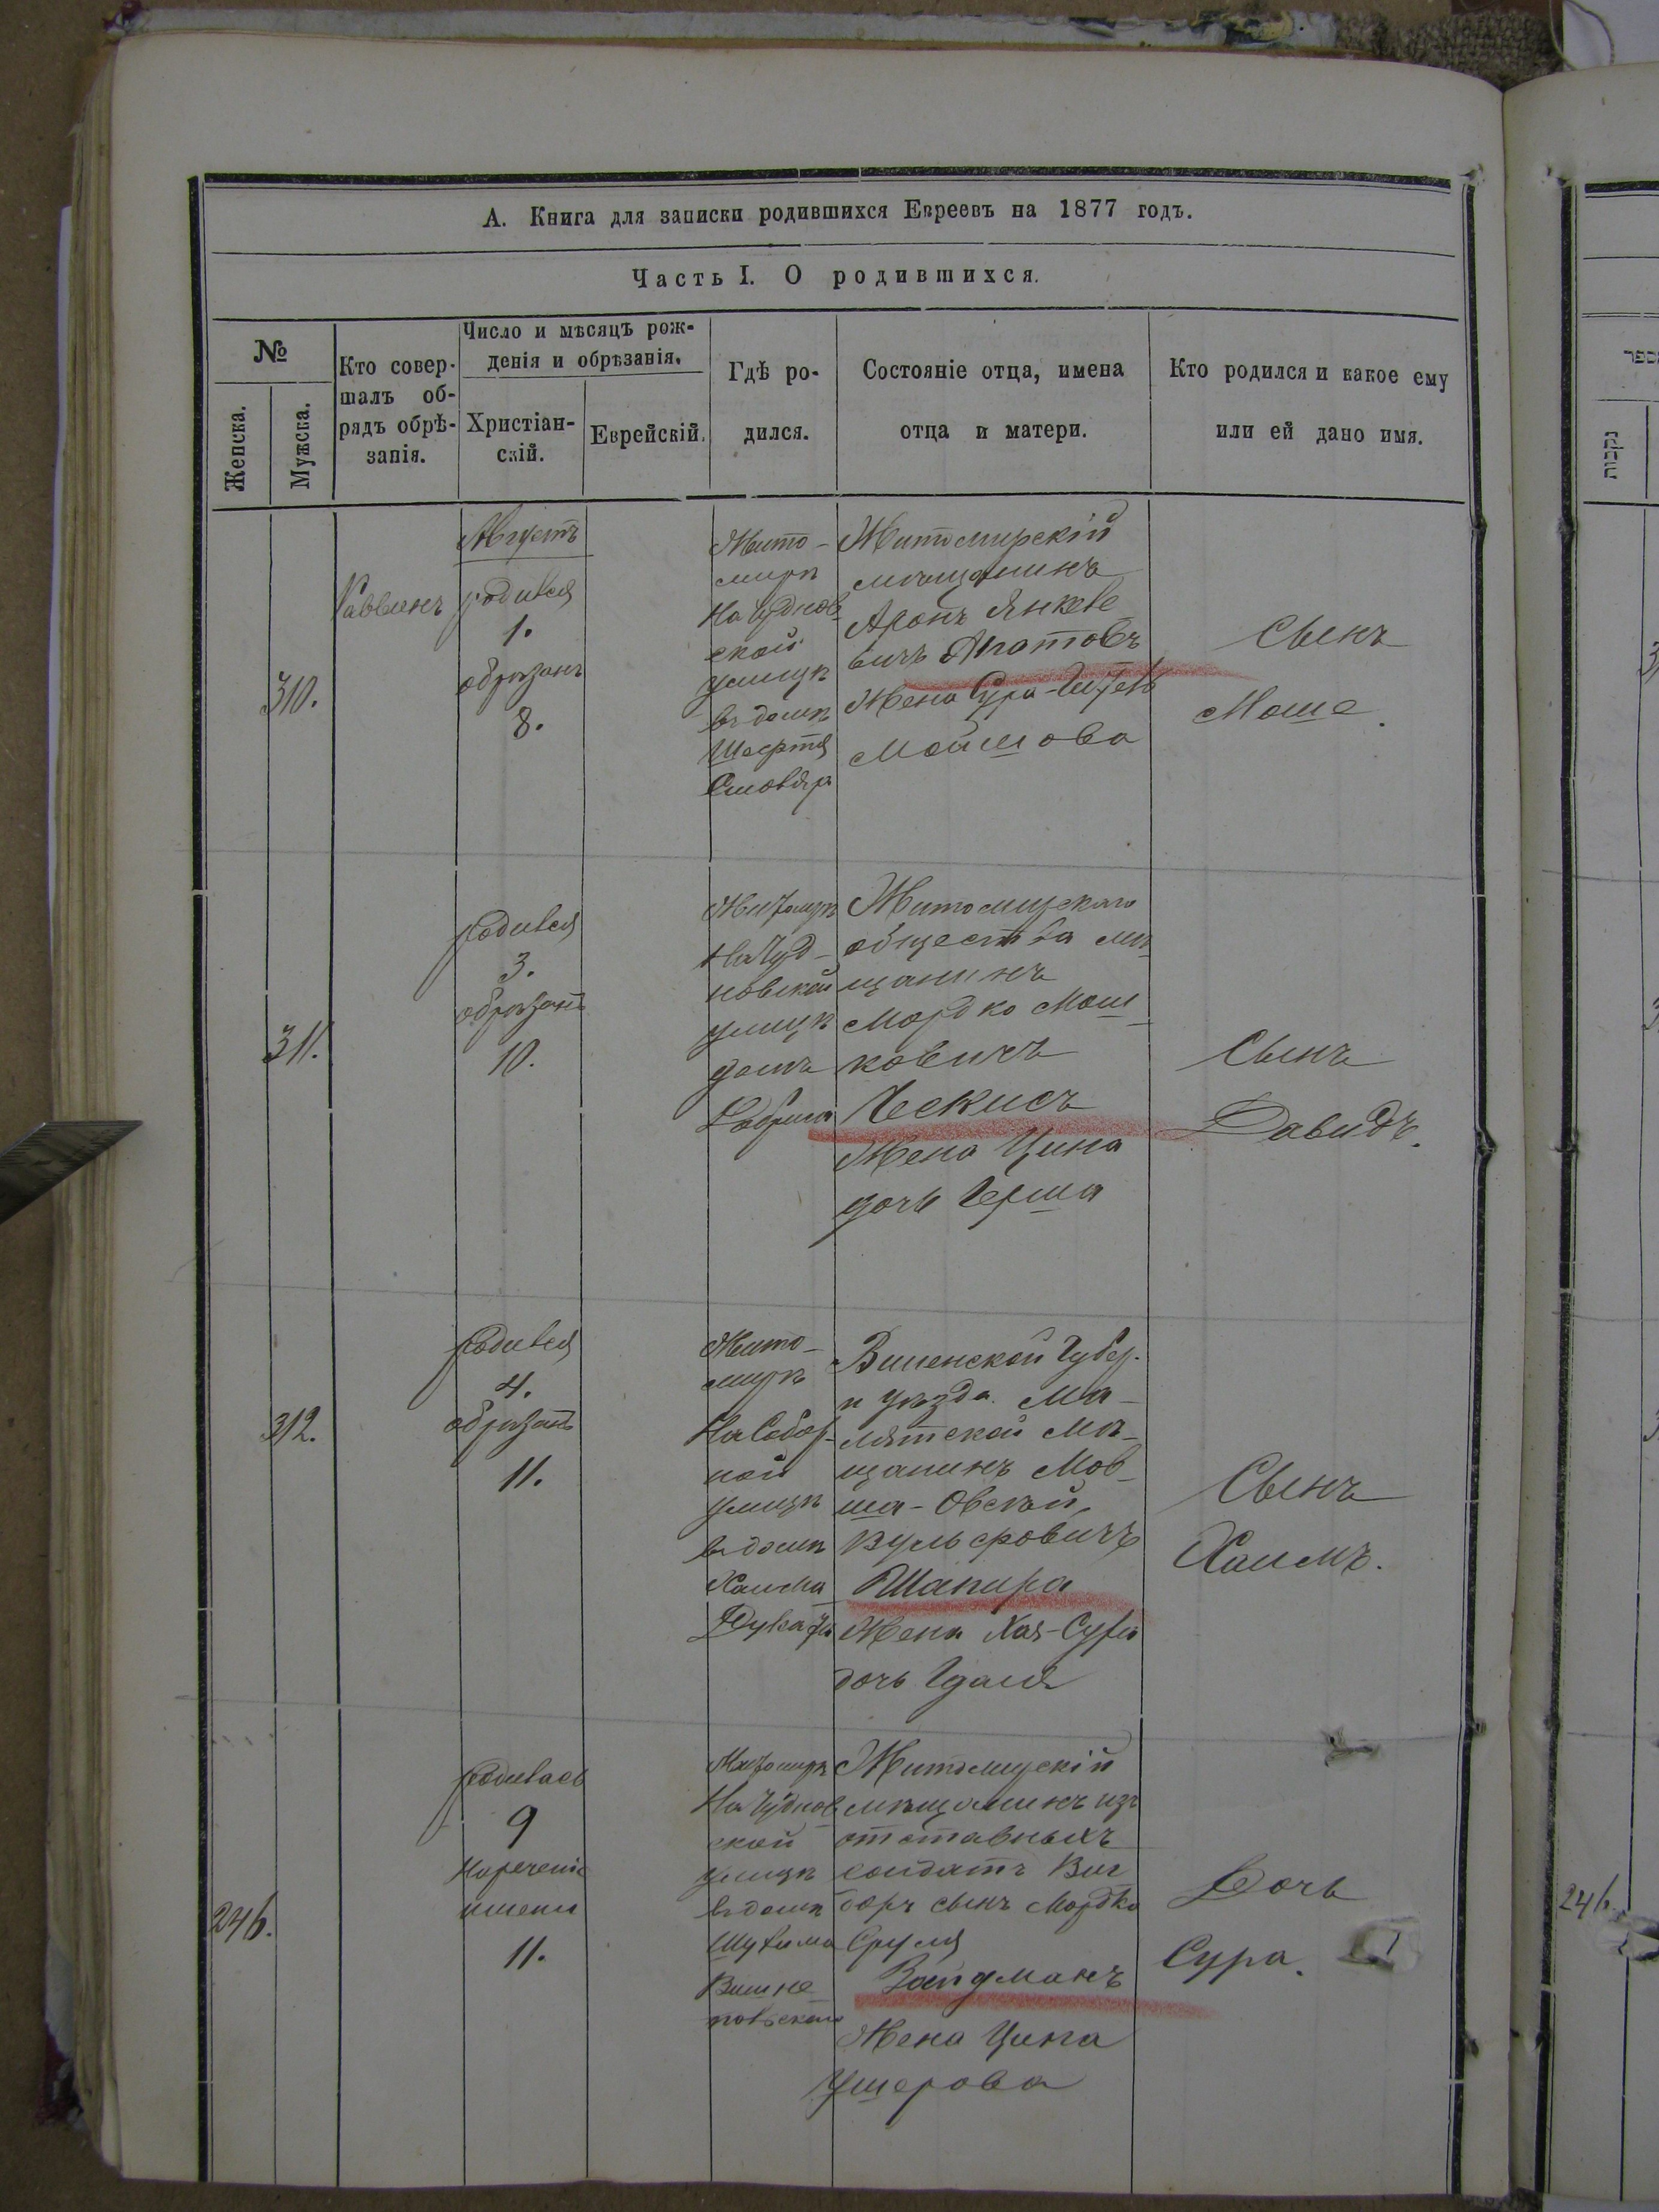 А. Книга для записки родившихся Евреевъ на 1877 годъ.
Часть I. О родившихся.
№
Женска.
Мужска.
Кто совер-
шалъ об-
рядъ обрѣ-
занія.
Число и мѣсяцъ рож-
денія и обрѣзанія.
Христіан-
скій.
Еврейскій.
Гдѣ ро-
дился.
Состояніе отца, имена
отца и матери.
Кто родился и какое ему
или ей дано имя.
310.
Раввинъ
Августъ
родился
1.
обрѣзанъ
8.
Жито-
мирѣ
На Чуднов-
ской
улицѣ
въ домѣ
Столяра
Житомирскій
мѣщанинъ
Аронъ Янкеле
вичъ
Жена Сура-
Мошкова
Сынъ
Моше.
311.
родился
3.
обрѣзанъ
10.
Житомирѣ
На Чуд-
новской
улицѣ
домъ
Житомирскаго
общества мѣ-
щанинъ
Мордко Мош-
ковичъ
Ческисъ
Жена Цина
дочь Герша
Сынъ
Давидъ.
312.
родился
4.
обрѣзанъ
11.
Жито-
мирѣ
На Собор-
ной
улицѣ
въ домѣ
Хаима
Виленской Губер.
и уѣзда Ма-
лятской мѣ-
щанинъ Мов-
ша-Овсей
Вульфовичъ
Шапира
Жена Хая-Сура
дочь Гдаля
Сынъ
Хаимъ.
246.
родилась
9
нареченіе
имени
11.
Житомирѣ
На Чуднов
ской
улицѣ
въ домѣ
Вишне-
повскаго
Житомирскій
мѣщанинъ изъ
отставныхъ
солдатъ Виг
доръ сынъ Мордко
Сруля
Зайдманъ
Жена Цина
Ушерова
Дочь
Сура.
נקבות
246.